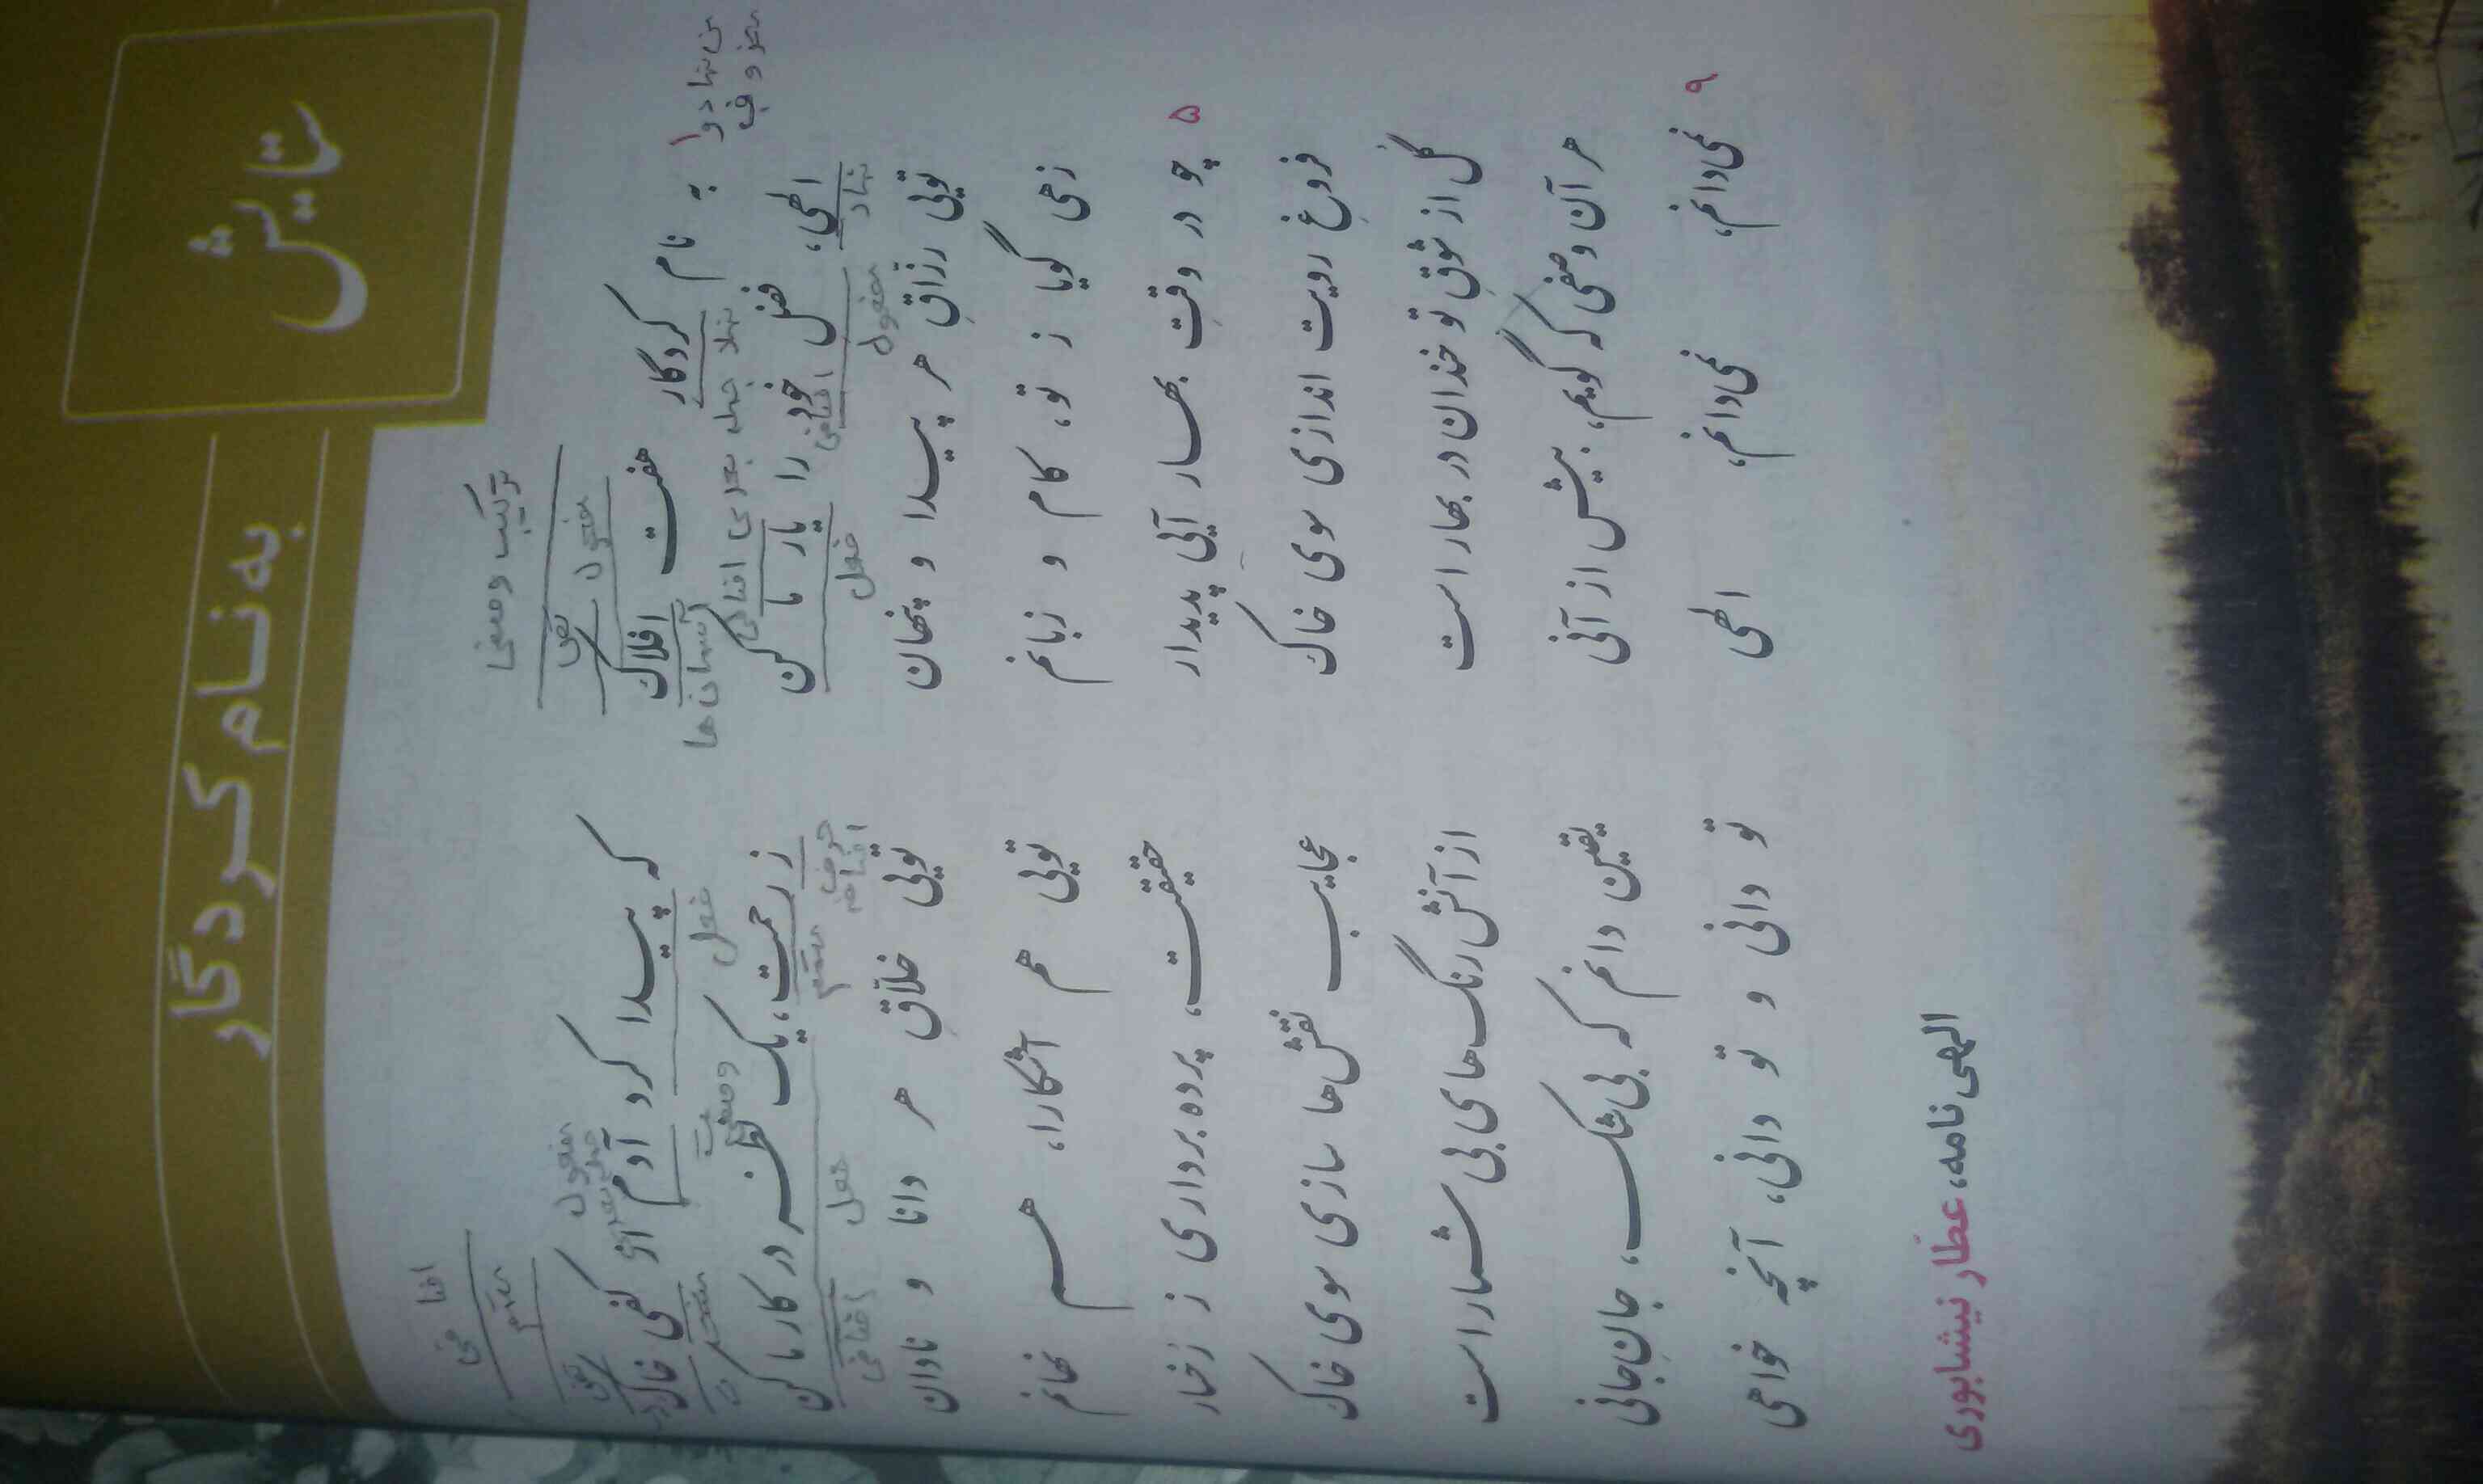 ستایش
به نام کردگار
ترکیب وصفی
مفعول
به نام کردگار هفت افلاک که پیدا کرد آدم از کفی خاک
آسمان‌ها فعل متمم
الهی، فضل خود را یار ما کن ز رحمت، یک نظر در کار ما کن
نهاد مفعول فعل حرف اضافه متمم فعل
تویی رزّاقِ هر پیدا و پنهان تویی خلّاقِ هر دانا و نادان
زهی گویا ز تو، کام و زبانم تویی هم آشکارا، هم نهانم
۵ چو در وقتِ بهار آیی پدیدار حقیقت، پرده برداری ز رخسار
فروغِ رویت اندازی سوی خاک عجایب نقش‌ها سازی سوی خاک
گُل از شوقِ تو خندان در بهار است از آنش رنگ‌های بی شمار است
هر آن وصفی که گویم، بیش از آنی یقین دانم که بی شک، جانِ جانی
۹ نمی‌دانم، نمی‌دانم، الهی تو دانی و تو دانی، آنچه خواهی
الهی نامه، عطّار نیشابوری